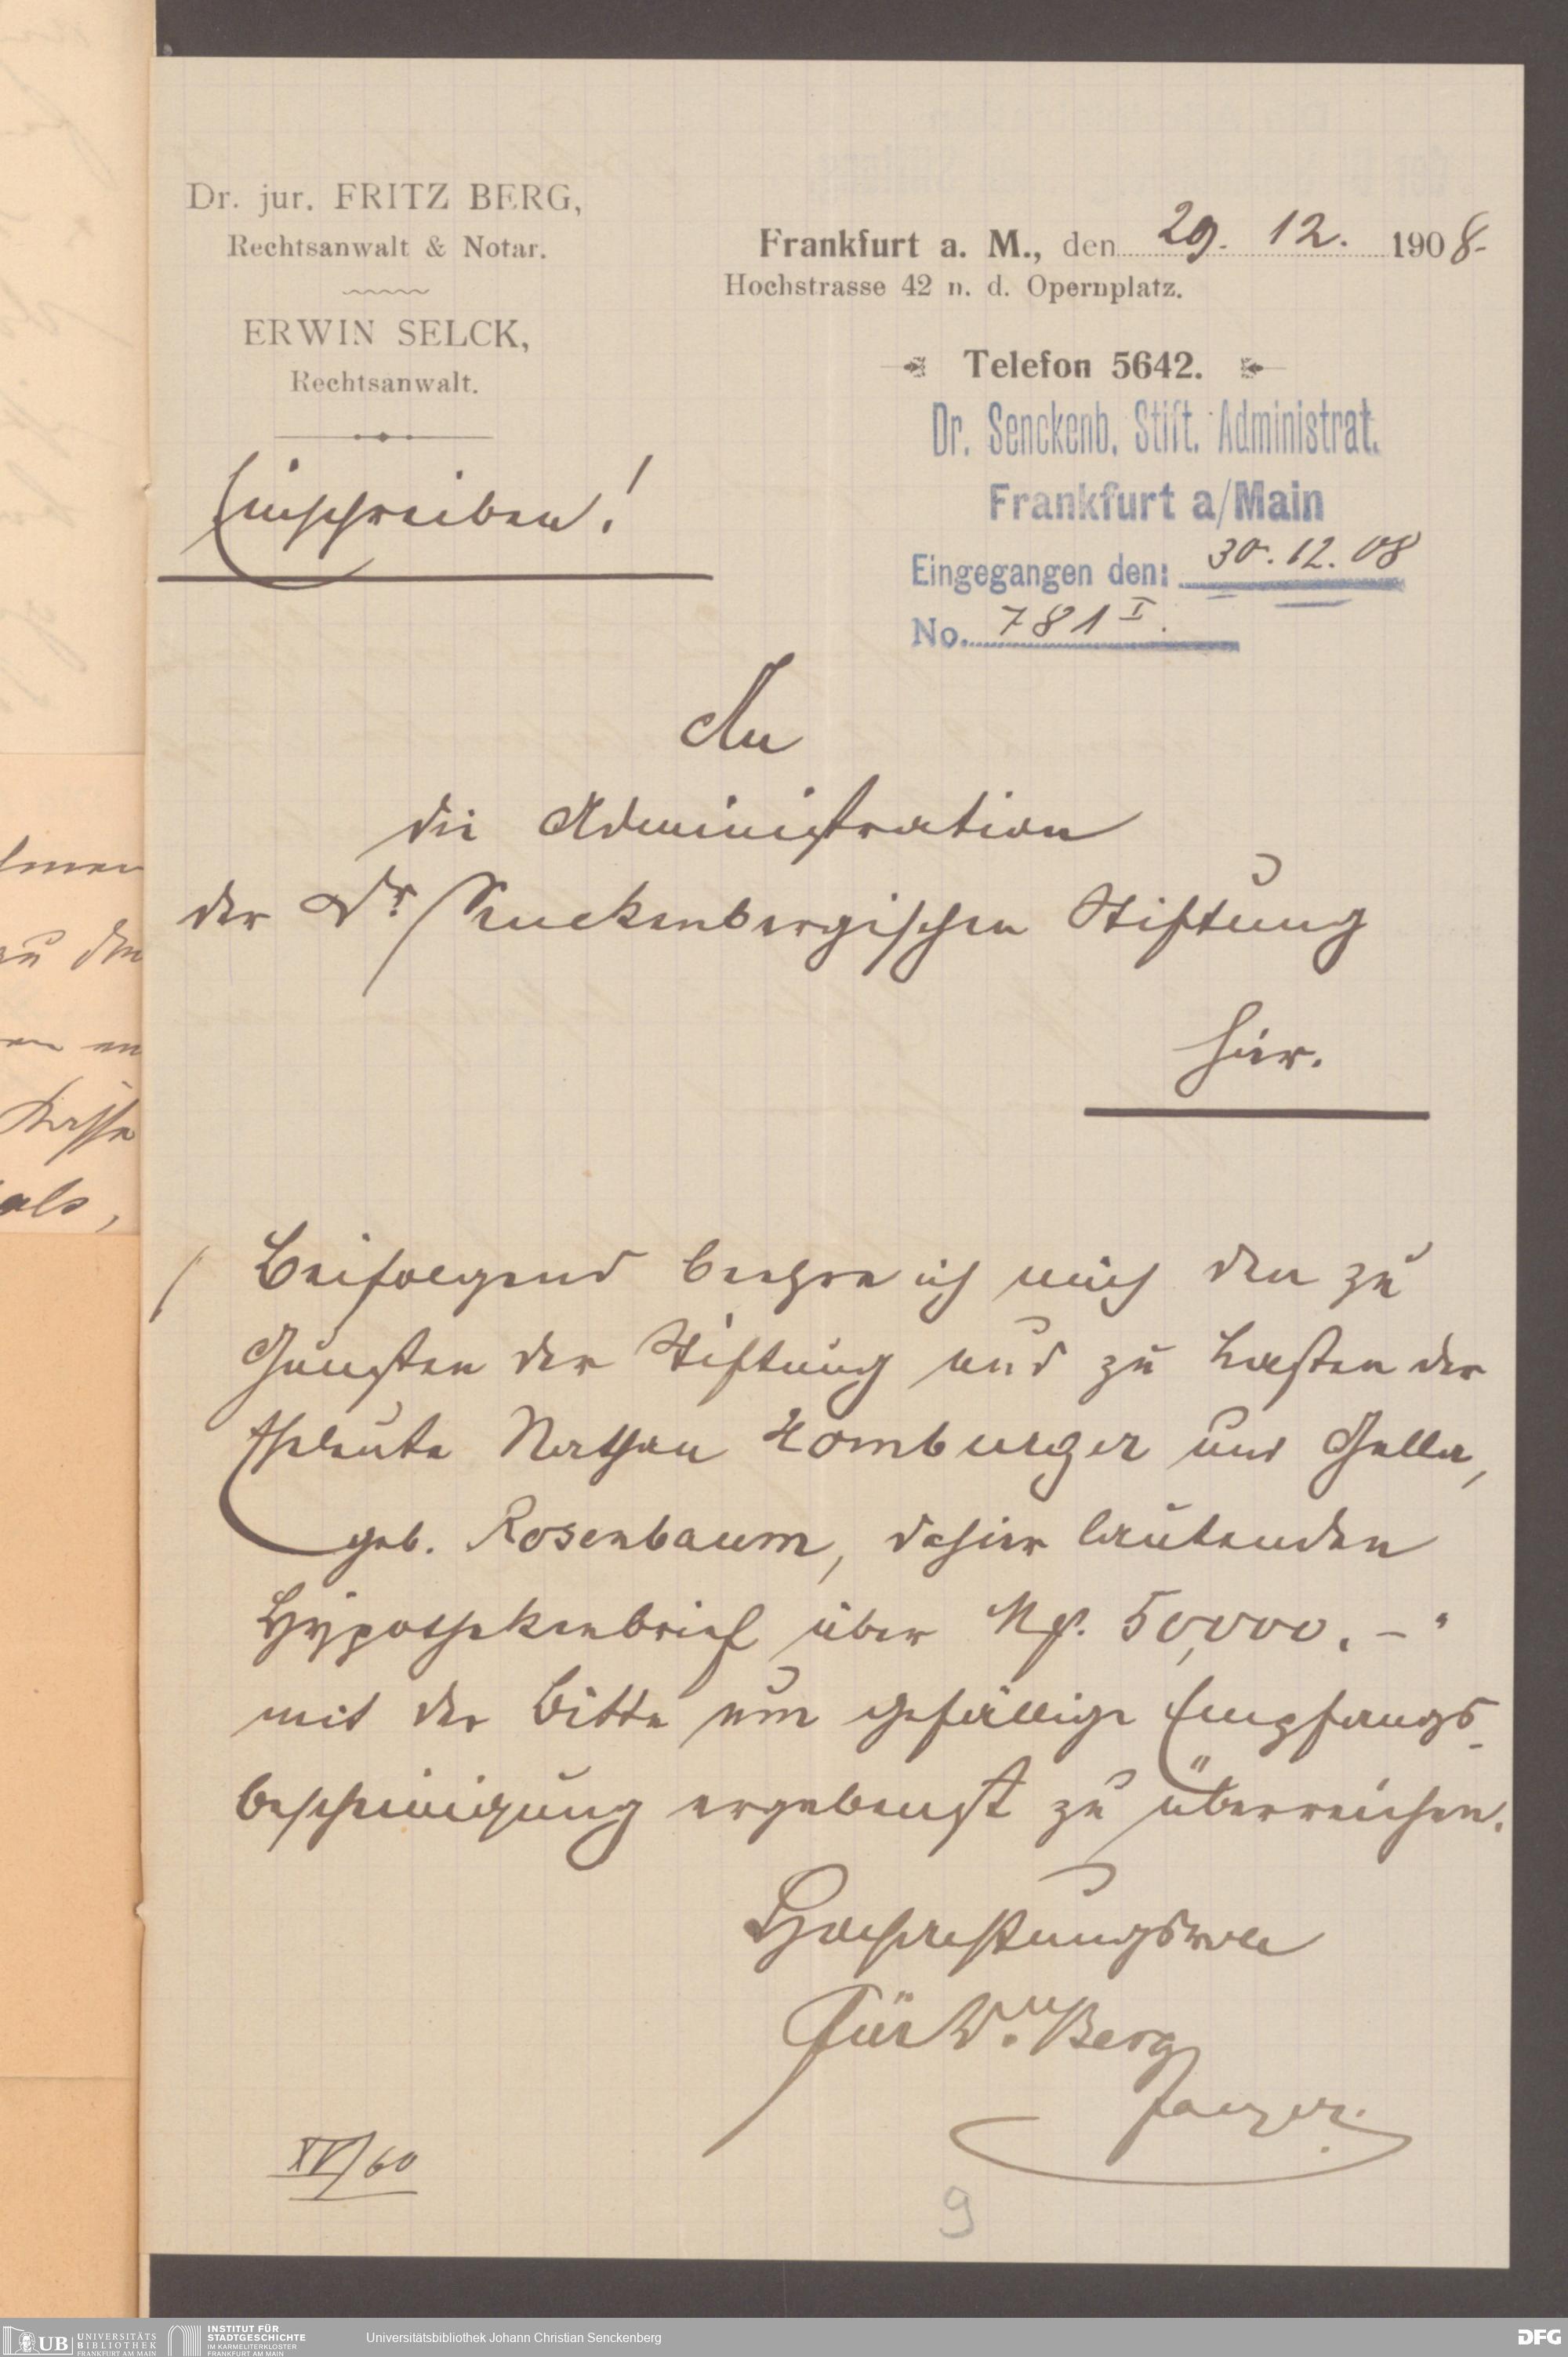 Dr. jur. FRITZ BERG,
Rechtsanwalt & Notar.
ERWIN SELCK,
Rechtsanwalt.
Frankfurt a. M., den 29. 12. 1908.
Hochstrasse 42 n. d. Opernplatz.
Telefon 5642.
Dr. Senckenb. Stift. Administrat.
Frankfurt a/Main
Eingegangen den: 30.12.08
No. 781 I.
Einschreiben!
An
die Administration
der Dr. Senckenbergischen Stiftung
hier.
Beifolgend beehre ich mich den zu
Gunsten der Stiftung und zu Lasten der
Eheleute Nathan Homburger und Hella,
geb. Rosenbaum, dahier lautenden
Hypothekenbrief über Mk. 50,000.–
mit der Bitte um gefällige Empfangs-
bescheinigung ergebenst zu überreichen.
Hochachtungsvoll
Für Dr. Berg
XV/60
9
lmen
zu den
en
Kasse
als,
UB UNIVERSITÄTS
BIBLIOTHEK
FRANKFURT AM MAIN
INSTITUT FÜR
STADTGESCHICHTE
IM KARMELITERKLOSTER
FRANKFURT AM MAIN
Universitätsbibliothek Johann Christian Senckenberg
DFG